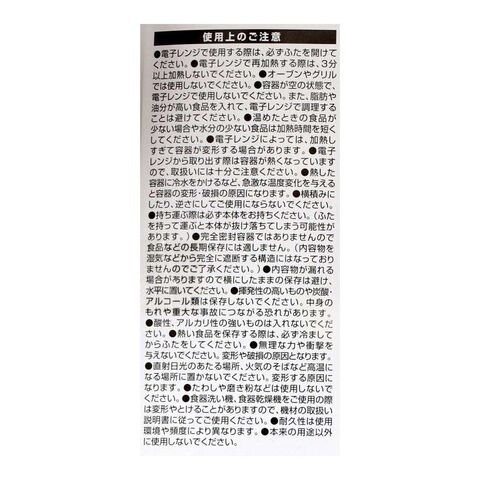 使用上のご注意
●電子レンジで使用する際は、必ずふたを開けて
ください。●電子レンジで再加熱する際は、3分
以上加熱しないでください。●オーブンやグリル
では使用しないでください。●容器が空の状態で、
電子レンジで使用しないでください。また、脂肪や
油分が高い食品を入れて、電子レンジで調理する
ことは避けてください。●温めたときの食品が
少ない場合や水分の少ない食品は加熱時間を短く
してください。●電子レンジによっては、加熱し
すぎて容器が変形する場合があります。●電子
レンジから取り出す際は容器が熱くなっています
ので、取扱いには十分ご注意ください。●熱した
容器に冷水をかけるなど、急激な温度変化を与える
と容器の変形・破損の原因になります。●横積みに
したり、逆さにしてご使用にならないでください。
●持ち運ぶ際は必ず本体をお持ちください。（ふた
を持って運ぶと本体が抜け落ちてしまう可能性が
あります。）●完全密封容器ではありませんので
食品などの長期保存には適しません。（内容物を
湿気などから完全に遮断する構造にはなっており
ませんのでご了承ください。）●内容物が漏れる
場合がありますので横にしたままの保存は避け、
水平に置いてください。●揮発性の高いものや炭酸・
アルコール類は保存しないでください。中身の
もれや重大な事故につながる恐れがあります。
●酸性、アルカリ性の強いものは入れないでくだ
さい。●熱い食品を保存する際は、必ず冷まして
からふたをしてください。●無理な力や衝撃を
与えないでください。変形や破損の原因となります。
●直射日光のあたる場所、火気のそばなど高温に
なる場所に置かないでください。変形する原因に
なります。●たわしや磨き粉などは使用しないで
ください。●食器洗い機、食器乾燥機をご使用の際
は変形やとけることがありますので、機材の取扱い
説明書に従ってご使用ください。●耐久性は使用
環境や頻度により異なります。●本来の用途以外
に使用しないでください。